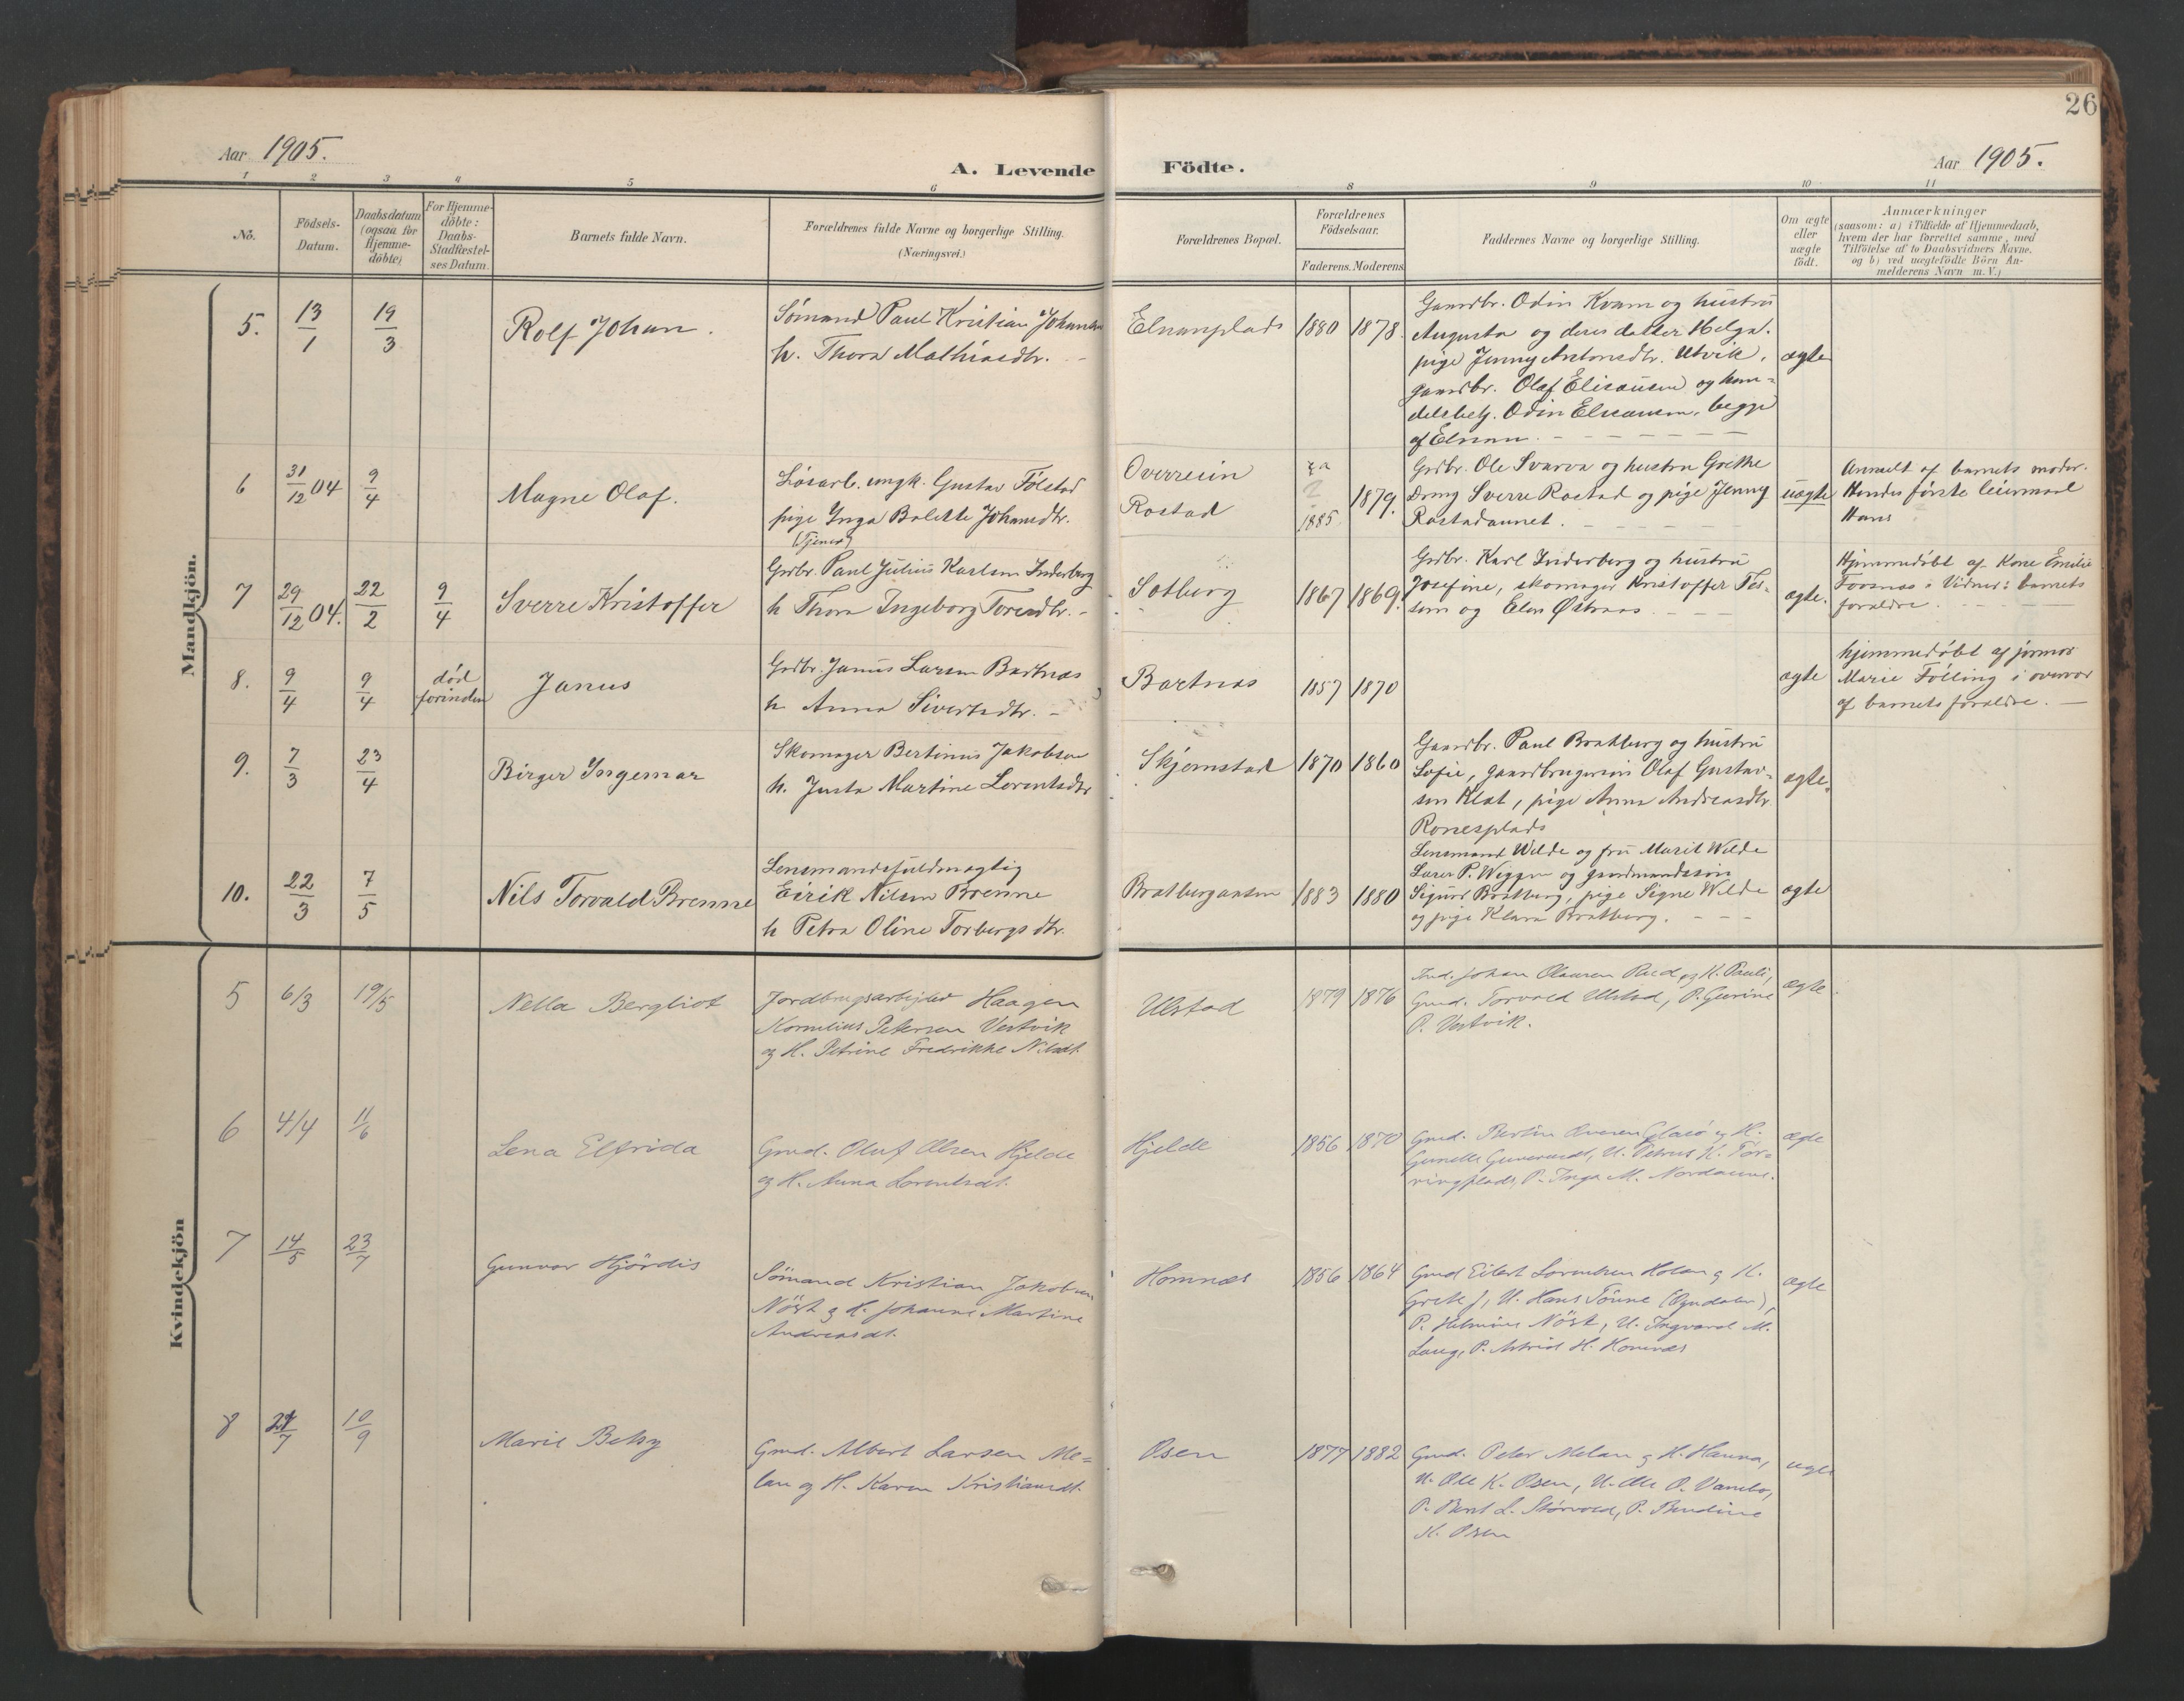 26
Aar 1905.
A. Levende Födte.
Aar 1905.
1 2 3 4 5 6 8 9 10 11
No.
Födsels-
Datum.
Daabsdatum
(ogsaa for
Hjemme-
döbte)
For Hjemme-
döbte:
Daabs-
Stadfæstel-
ses Datum.
Barnets fulde Navn.
Forældrenes fulde Navne og borgerlige Stilling.
(Næringsvei.)
Forældrenes Bopæl.
Forældrenes
Födselsaar.
Faderens. Moderens.
Faddernes Navne og borgerlige Stilling.
Om ægte
eller
uægte
födt.
Anmærkninger
(saasom: a) i Tilfælde af Hjemmedaab,
hvem der har forrettet samme, med
Tilföielse af to Daabsvidners Navne.
og b) ved uægtefödte Börn An-
melderens Navn m. V.)
Mandkjön.
5.
13/1
19/3
Rolf Johan.
Sømand Paul Kristian Johansen
h. Thora Mathiasdtr.
Elnanplads
1880
1878.
Gaardbr. Odin Kvam og hustru
Augusta og deres datter Helga.
pige Jenny Antonsdtr. Utvik,
gaardbr. Olaf Elisausen og han-
delsbetj. Odin Eliseussen, begge
af Elnan.
ægte
6
31/12 04
9/4
Magne Olaf.
Løsarb. ungk. Gustav Følstad
pige Inga Bolette Johansdtr.
(Tjener)
Overrein
Rostad
1885
1879.
Grdbr. Ole Svarva og hustru Grethe
Dreng Sverre Rostad og pige Jenny
Rostadaunet.
uægte
Anmelt af barnets moder.
Hendes første leiermaal
Hans
7
29/12 04.
22/2
9/4
Sverre Kristoffer
Grdbr. Paul Julius Karlsen Inderberg
h Thora Ingeborg Toresdtr.
Solberg
1867
1869.
Grdbr. Karl Inderberg og hustru
Josefine, skomager Kristoffer Fos-
sem og Elen Østraas
ægte.
Hjemmedøbt af Kone Emilie
Forsnæs. Vidner: barnets
forældre.
8.
9/4
9/4
død
forinden
Janus
Grdbr. Janus Larsen Bartnæs
h Anna Sivertsdtr.
Bartnæs
1857
1870
ægte
hjemmedøbt af jormor
Marie Følling i overvær
af barnets forældre.
9.
7/3
23/4
Birger Ingemar
Skomager Bertinus Jakobsen
h. Justa Martine Lorentsdtr
Skjemstad
1870
1860
Gaardbr. Paul Bratberg og hustru
Sofie, gaardbrugersøn Olaf Gustav-
sen Klæt, pige Anna Andreasdtr.
Rossesplads
ægte.
10.
22/3
7/5
Nils Torvald Brenne
Lensmandsfuldmægtig
Eirik Nilsen Brenne
h Petra Oline Torbergsdtr.
Bratbergaunen
1883
1880
Lensmand Wilde og fru Marit Wilde
Lærer P. Wiggen og gaardmandssøn
Sigurd Bratberg, pige Signe Wilde
og pige Klara Bratberg.
ægte
Kvindekjön
5
6/3
19/5
Nella Bergliot
Jordbrugsarbejder Haagen
Kornelius Petersen Vestvik
og H. Petrine Fredrikke Nilsdt.
Ulstad
1879
1876
Ind. Johan Olausen Rued og H. Pauli,
Gmd. Torvald Ulstad, P. Gurine
P. Vestvik.
ægte
6
4/4
11/6
Lena Elfrida
Gmd. Oluf Olsen Hjelde
og H. Anna Lorentsdt.
Hjelde
1856
1870
Gmd. Bertin Glasø og H.
Gunelle U. Petrus K. Tør-
ringplads, P. Inga M. Nordaune.
ægte
7
14/5
23/7
Gunvor Hjördis
Sömand Kristian Jakobsen
Nöst og H. Johanne Martine
Andreasdt.
Homnæs
1856
1864
Gmd Eilert Lorentsen Holan og H.
Grete J, U. Hans Tönne
P. Helmine Nöst, U. Ingvard M.
Laug, P. Astrid H. Homnæs
ægte
8
24/7
10/9
Marie Betsy
Gmd. Albert Larsen Me-
lan og H. Karen Kristiansdt.
Osen
1877
1882
Gmd. Peter Melan og H. Hanna,
U. Ole K. Osen, U. Ole O. Vambo,
P. Berit L. Störvold, P. Bendine
K. Osen
ægte